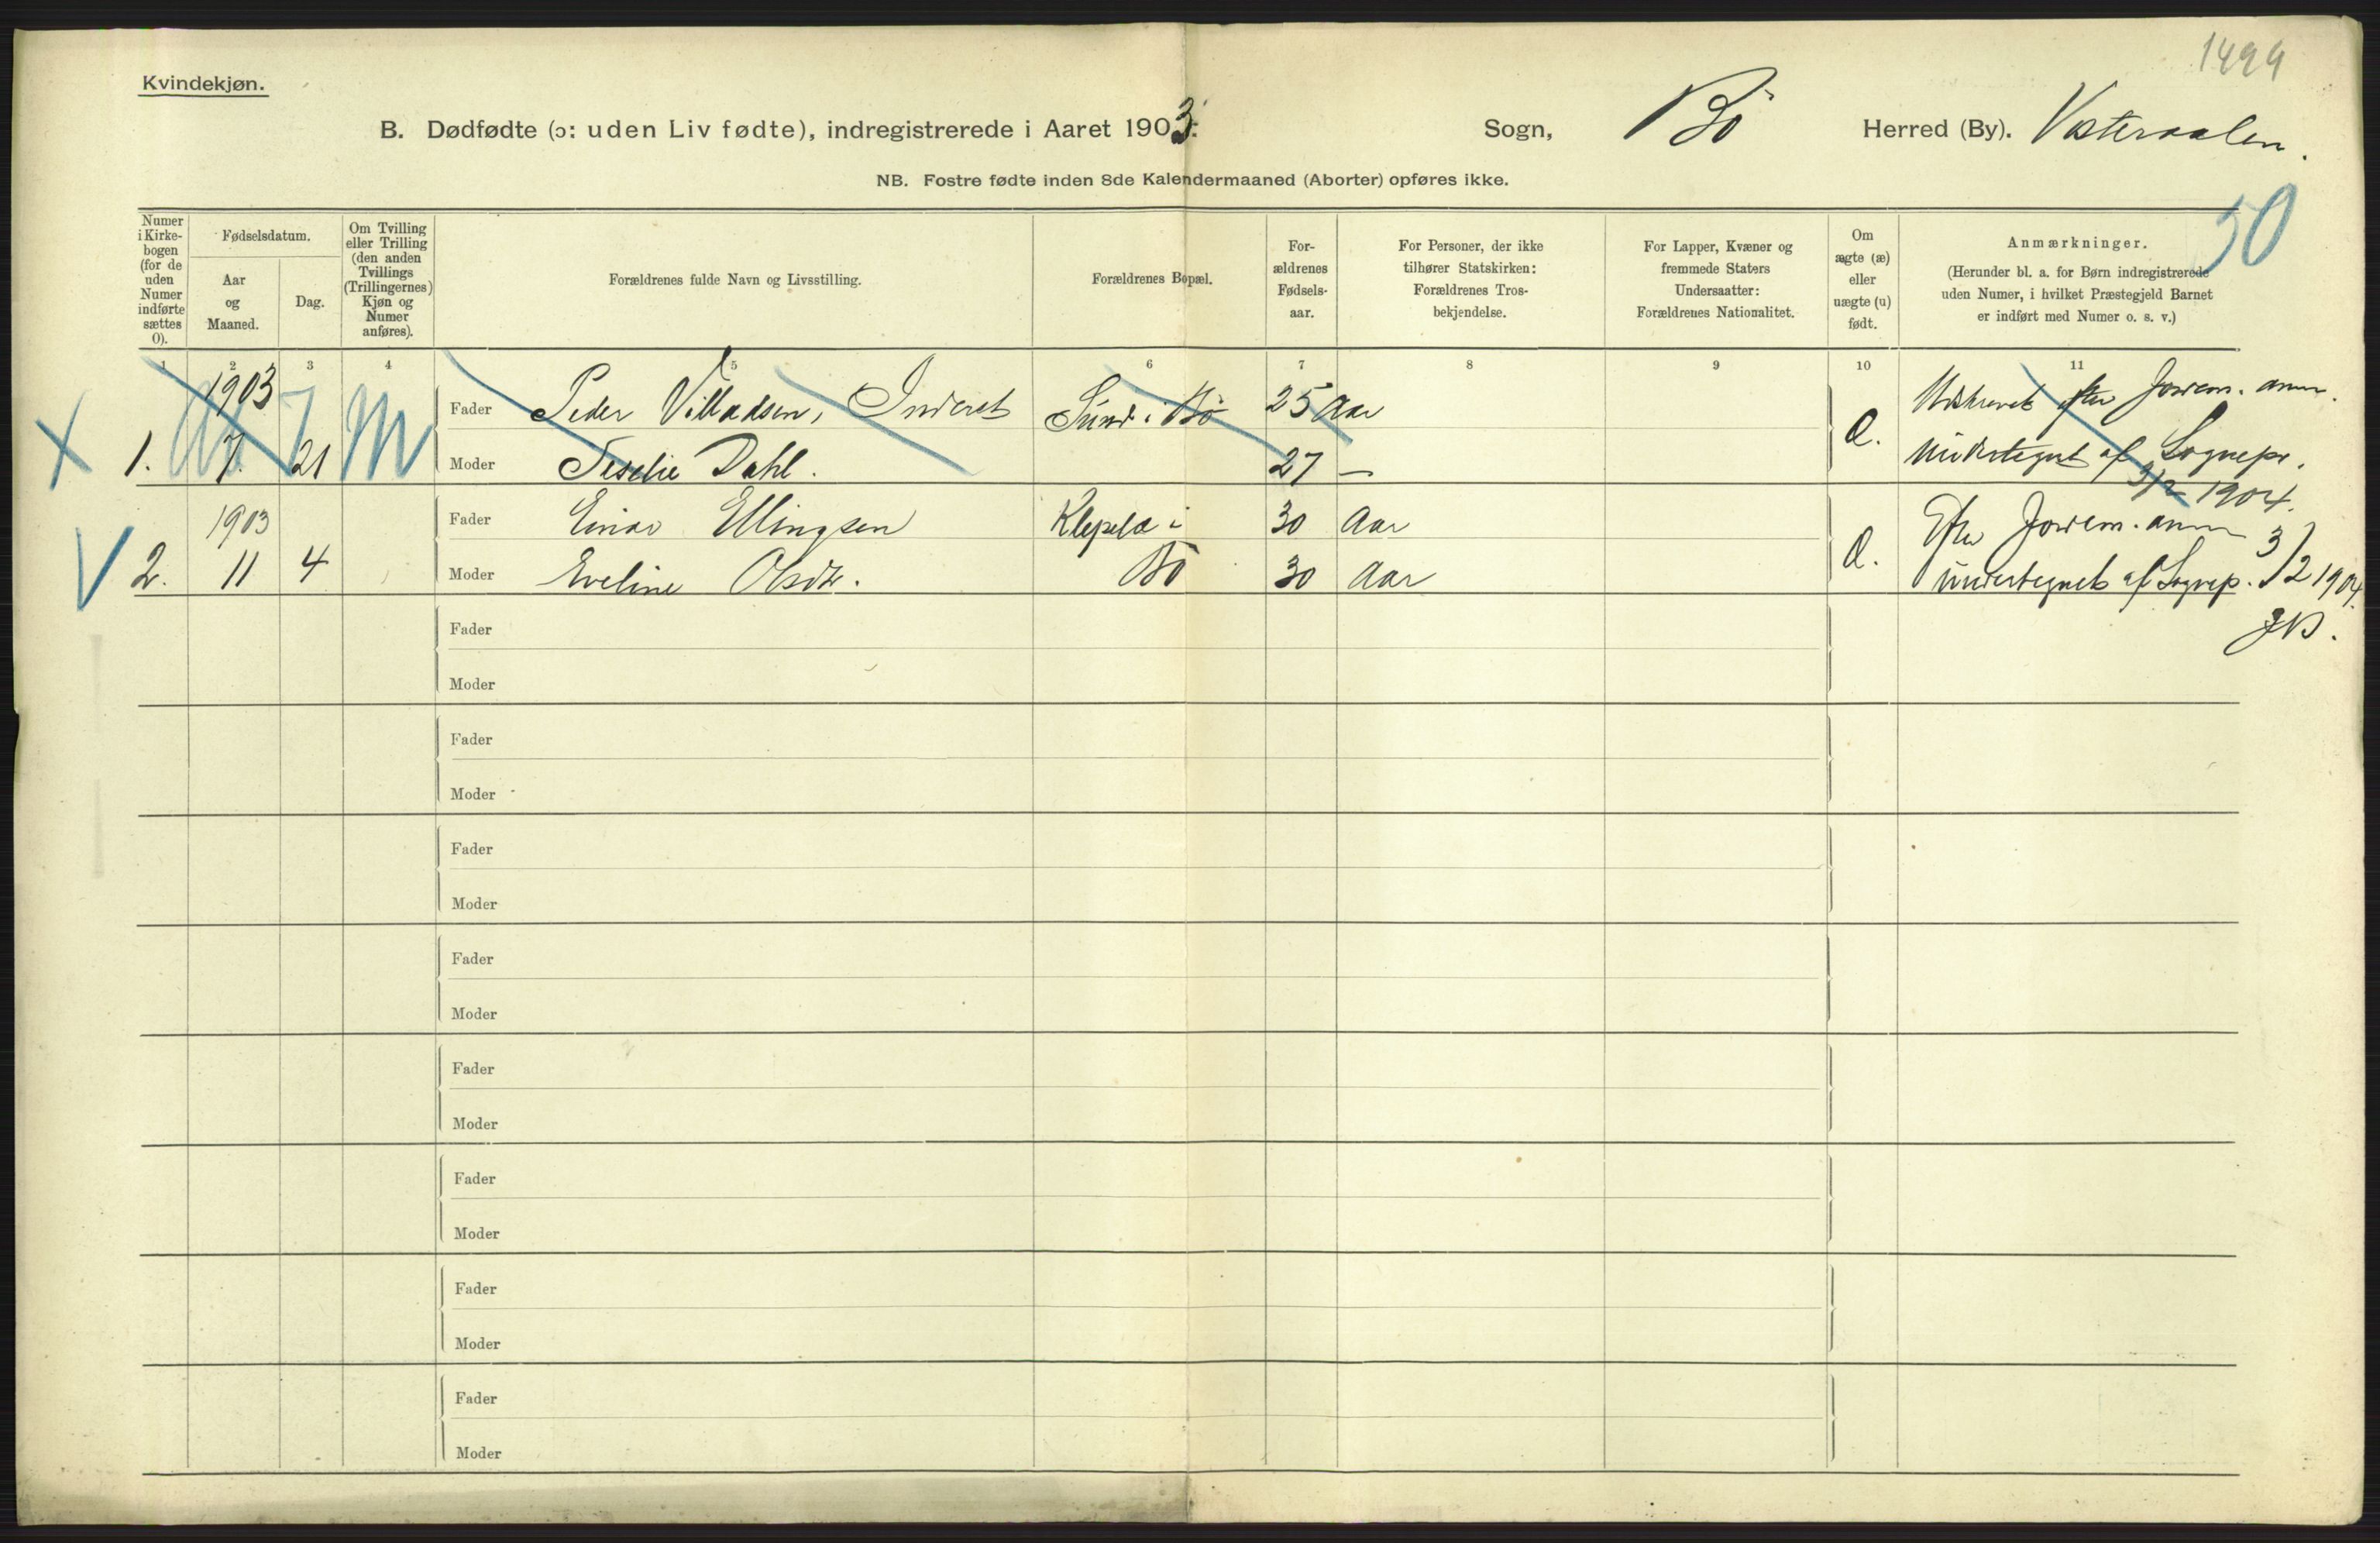 1494
Kvindekjøn.
B. Dødfødte (ɔ: uden Liv fødte), indregistrerede i Aaret 1903. Sogn, Bö Herred (By). Vesteraalen.
NB. Fostre fødte inden 8de Kalendermaaned (Aborter) opføres ikke.
50
Numer
i Kirke-
bogen
(for de
uden
Numer
indførte
sættes
0).
Fødselsdatum.
Aar
og
Maaned.
Dag.
Om Tvilling
eller Trilling
(den anden
Tvillings
(Trillingernes)
Kjøn og
Numer
anføres).
Forældrenes fulde Navn og Livsstilling.
Forældrenes Bopæl.
For-
ældrenes
Fødsels-
aar.
For Personer, der ikke
tilhører Statskirken:
Forældrenes Tros-
bekjendelse.
For Lapper, Kvæner og
fremmede Staters
Undersaatter:
Forældrenes Nationalitet.
Om
ægte (æ)
eller
uægte (u)
født.
Anmærkninger.
(Herunder bl. a. for Børn indregistrerede
uden Numer, i hvilket Præstegjeld Barnet
er indført med Numer o. s. v.)
1 2 3 4 5 6 7 8 9 10 11
1903 Fader Peder Villadsen, Sund i Bö 25 Aar efter Jordem. anm.
X 1. 7. 21 M Moder Dahl. 27 — undertegnet af Sognepr.
3/2 1904.
1903 Fader Einar Ellingsen i 30 Aar Efter Jordem. anm
V 2. 11 4 Moder Eveline Olsdtr. Bö 30 Aar undertegnet af Sognep. 3/2 1904.
Fader
Moder
Fader
Moder
Fader
Moder
Fader
Moder
Fader
Moder
Fader
Moder
Fader
Moder
Fader
Moder